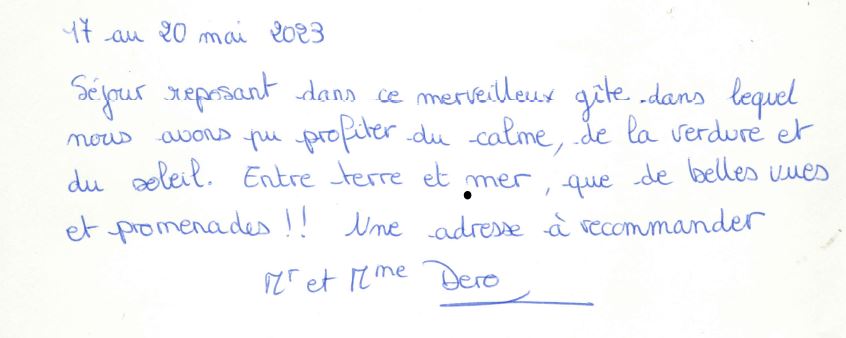 17 au 20 mai 2023
Séjour reposant dans ce merveilleux gîte dans lequel
nous avons pu profiter du calme, de la verdure et
du soleil. Entre terre et mer, que de belles vues
et promenades !! Une adresse à recommander
Mr et Mme Dero